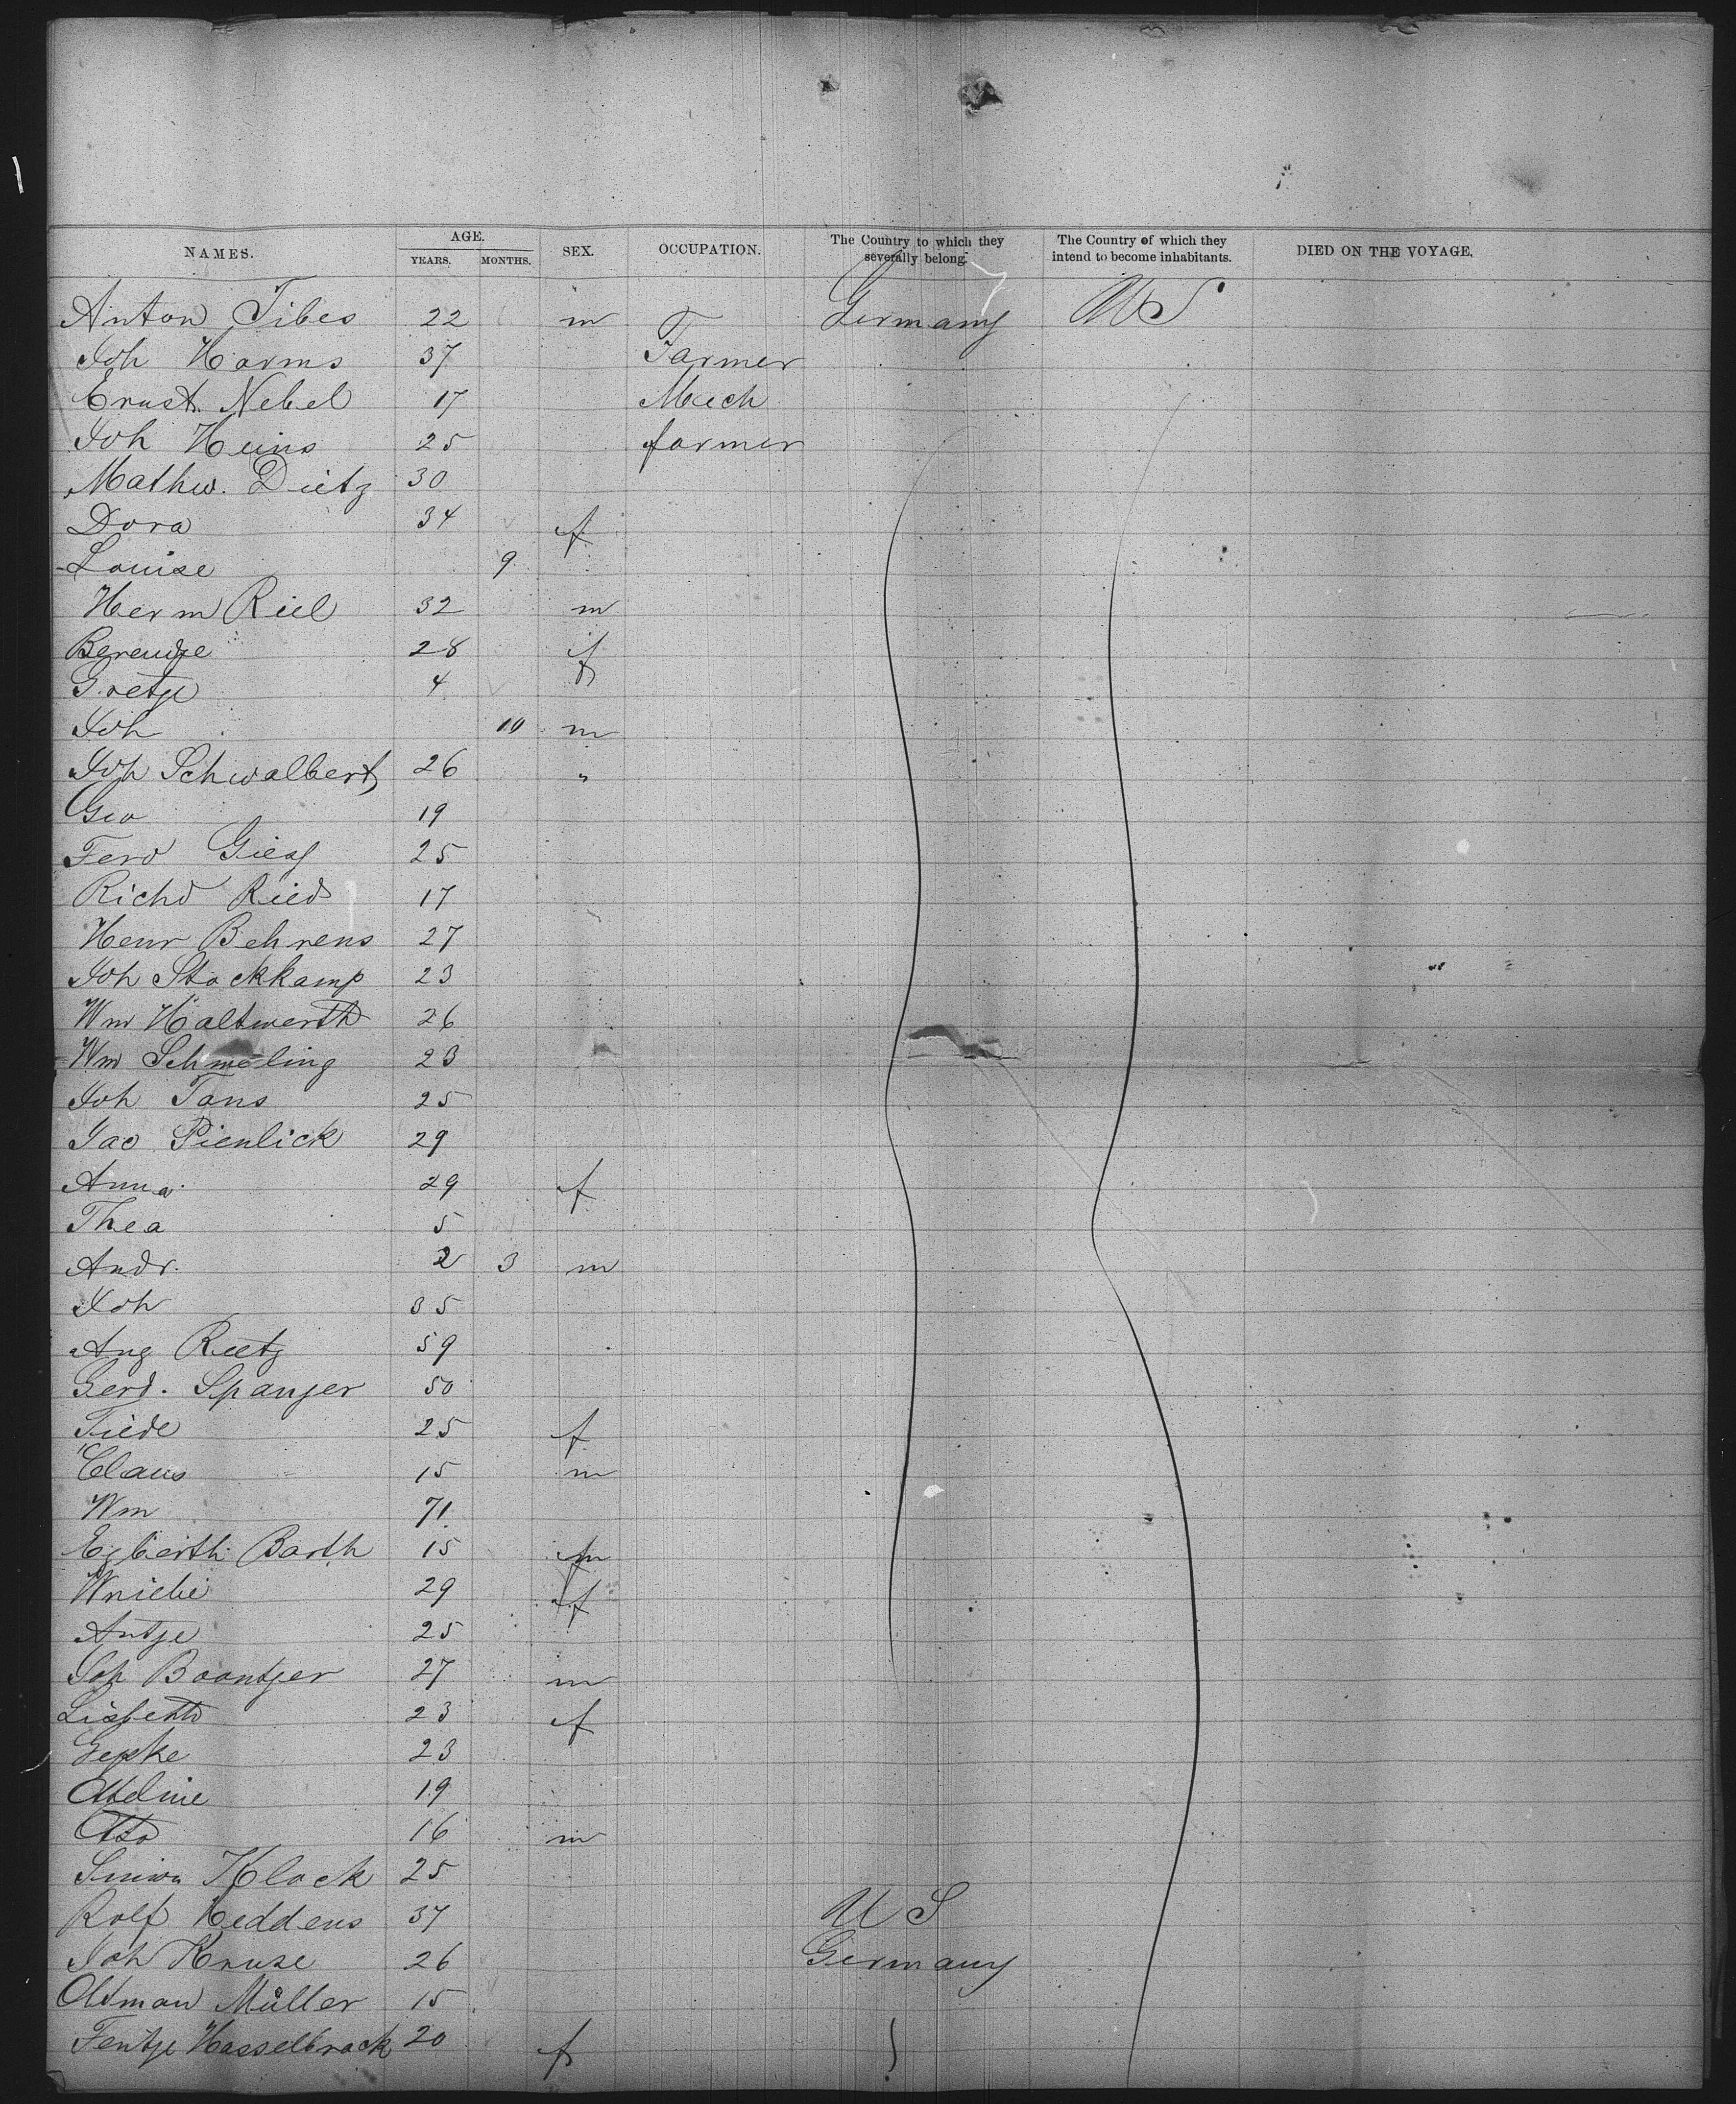 NAMES. AGE. YEARS. MONTHS. SEX. OCCUPATION. The Country to which they severally belong. The Country of which they intend to become inhabitants. DIED ON THE VOYAGE.
Anton Tibes 22 m Germany U S
Joh Harms 37 Farmer
Ernst Nebel 17 Mech
Joh Heins 25 farmer
Mathw. Dietz 30
Dora 34 f
Louise 9
Herm Riel 32 m
Berendje 28 f
Gretje 4 f
Joh 10 m
Joh Schwalbert 26 "
Geo 19
Ferd Giess 25
Richd Ried 17
Henr Behrens 27
Joh Stockkamp 23
Wm Haltwerth 26
Wm Schmeling 23
Joh Tans 25
Jac Pienlick 29
Anna 29 f
Thea 5
Andr. 2 3 m
Joh 35
Aug Reetz 59
Gerd. Spanjer 50
Tiede 25 f
Claus 15 m
Wm 71
Egberth Barth 15 m
29 f
Antje 25
Joh Boontjer 27 m
Lisbeth 23 f
Gepke 23
Adeline 19
Otto 16 m
Klock 25
Rolf Heddens 37 U S
Joh Kruse 26 Germany
Oltman Müller 15
Fentje Hasselbrock 20 f